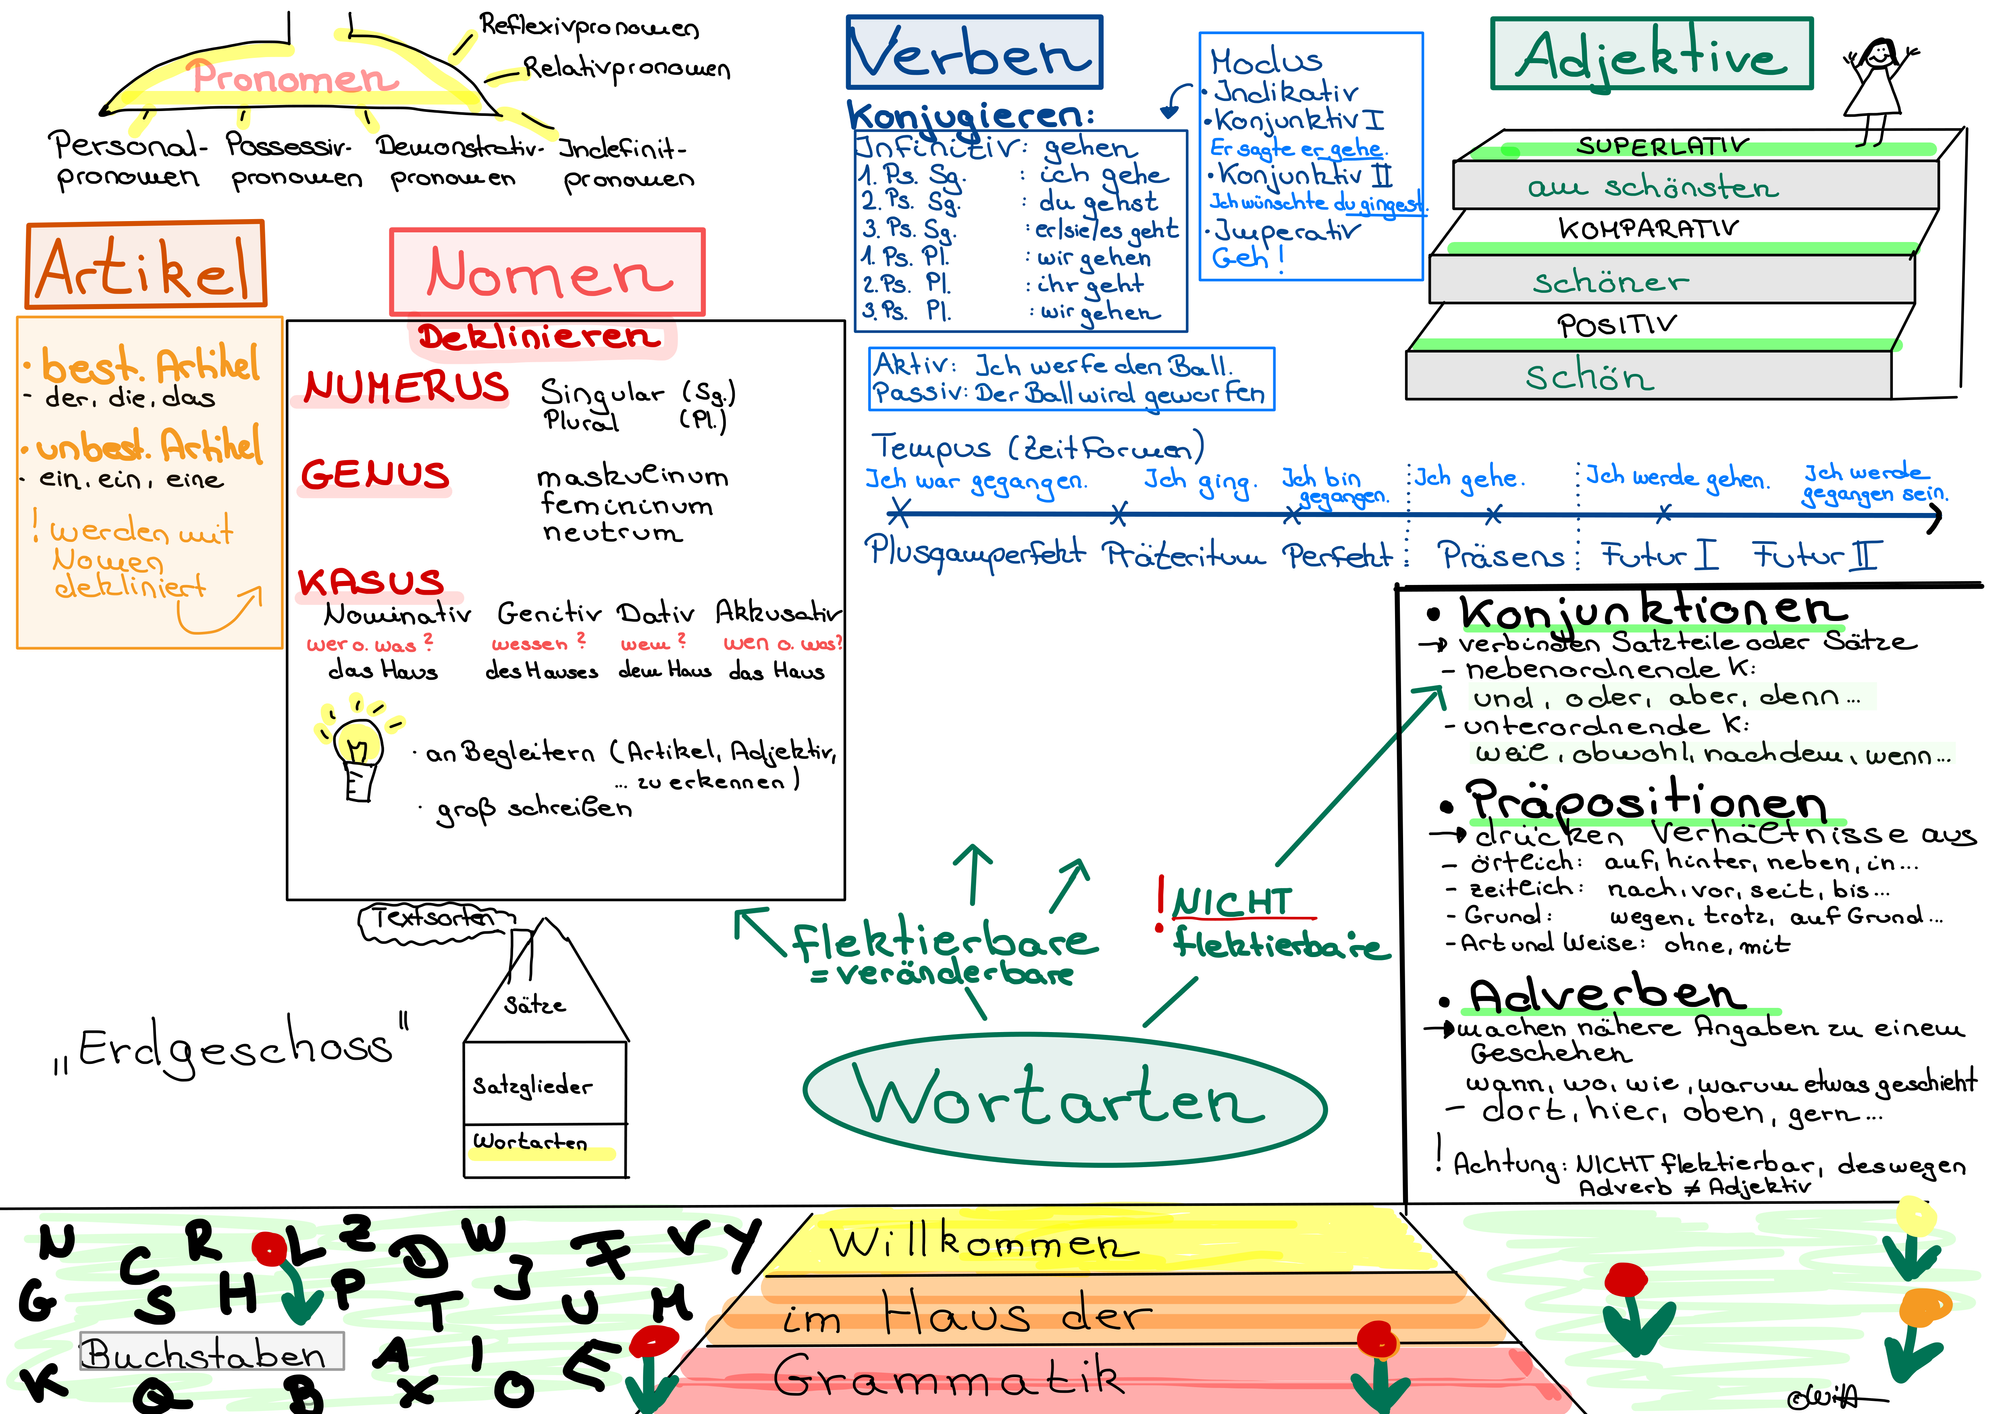 Pronomen
Reflexivpronomen
Relativpronomen
Personal-
pronomen
Possessiv-
pronomen
Demonstrativ-
pronomen
Indefinit-
pronomen
Artikel
• best. Artikel
- der, die, das
• unbest. Artikel
- ein, ein, eine
! werden mit
Nomen
dekliniert
Nomen
Deklinieren
NUMERUS
Singular (Sg.)
Plural (Pl.)
GENUS
maskulinum
femininum
neutrum
KASUS
Nominativ Genitiv Dativ Akkusativ
wer o. was? wessen? wem? wen o. was?
das Haus des Hauses dem Haus das Haus
· an Begleitern (Artikel, Adjektiv,
... zu erkennen)
· groß schreiben
Verben
Konjugieren:
Infinitiv: gehen
1. Ps. Sg. : ich gehe
2. Ps. Sg. : du gehst
3. Ps. Sg. : er/sie/es geht
1. Ps. Pl. : wir gehen
2. Ps. Pl. : ihr geht
3. Ps. Pl. : wir gehen
Modus
• Indikativ
• Konjunktiv I
Er sagte er gehe.
• Konjunktiv II
Ich wünschte du gingest.
• Imperativ
Geh!
Aktiv: Ich werfe den Ball.
Passiv: Der Ball wird geworfen
Tempus (Zeitformen)
Ich war gegangen. Ich ging. Ich bin gegangen. Ich gehe. Ich werde gehen. Ich werde gegangen sein.
Plusqamperfekt Präteritum Perfekt Präsens Futur I Futur II
Adjektive
SUPERLATIV
am schönsten
KOMPARATIV
schöner
POSITIV
schön
• Konjunktionen
→ verbinden Satzteile oder Sätze
- nebenordnende K:
und, oder, aber, denn...
- unterordnende K:
weil, obwohl, nachdem, wenn...
• Präpositionen
→ drücken Verhältnisse aus
- örtlich: auf, hinter, neben, in...
- zeitlich: nach, vor, seit, bis...
- Grund: wegen, trotz, auf Grund...
- Art und Weise: ohne, mit
• Adverben
→ machen nähere Angaben zu einem
Geschehen
wann, wo, wie, warum etwas geschieht
- dort, hier, oben, gern...
! Achtung: NICHT flektierbar, deswegen
Adverb ≠ Adjektiv
flektierbare
= veränderbare
! NICHT
flektierbare
Wortarten
Textsorten
Sätze
Satzglieder
Wortarten
„Erdgeschoss"
N C R L Z D W J F V Y
G S H P T U M
Buchstaben
A I E
K Q B X O
Willkommen
im Haus der
Grammatik